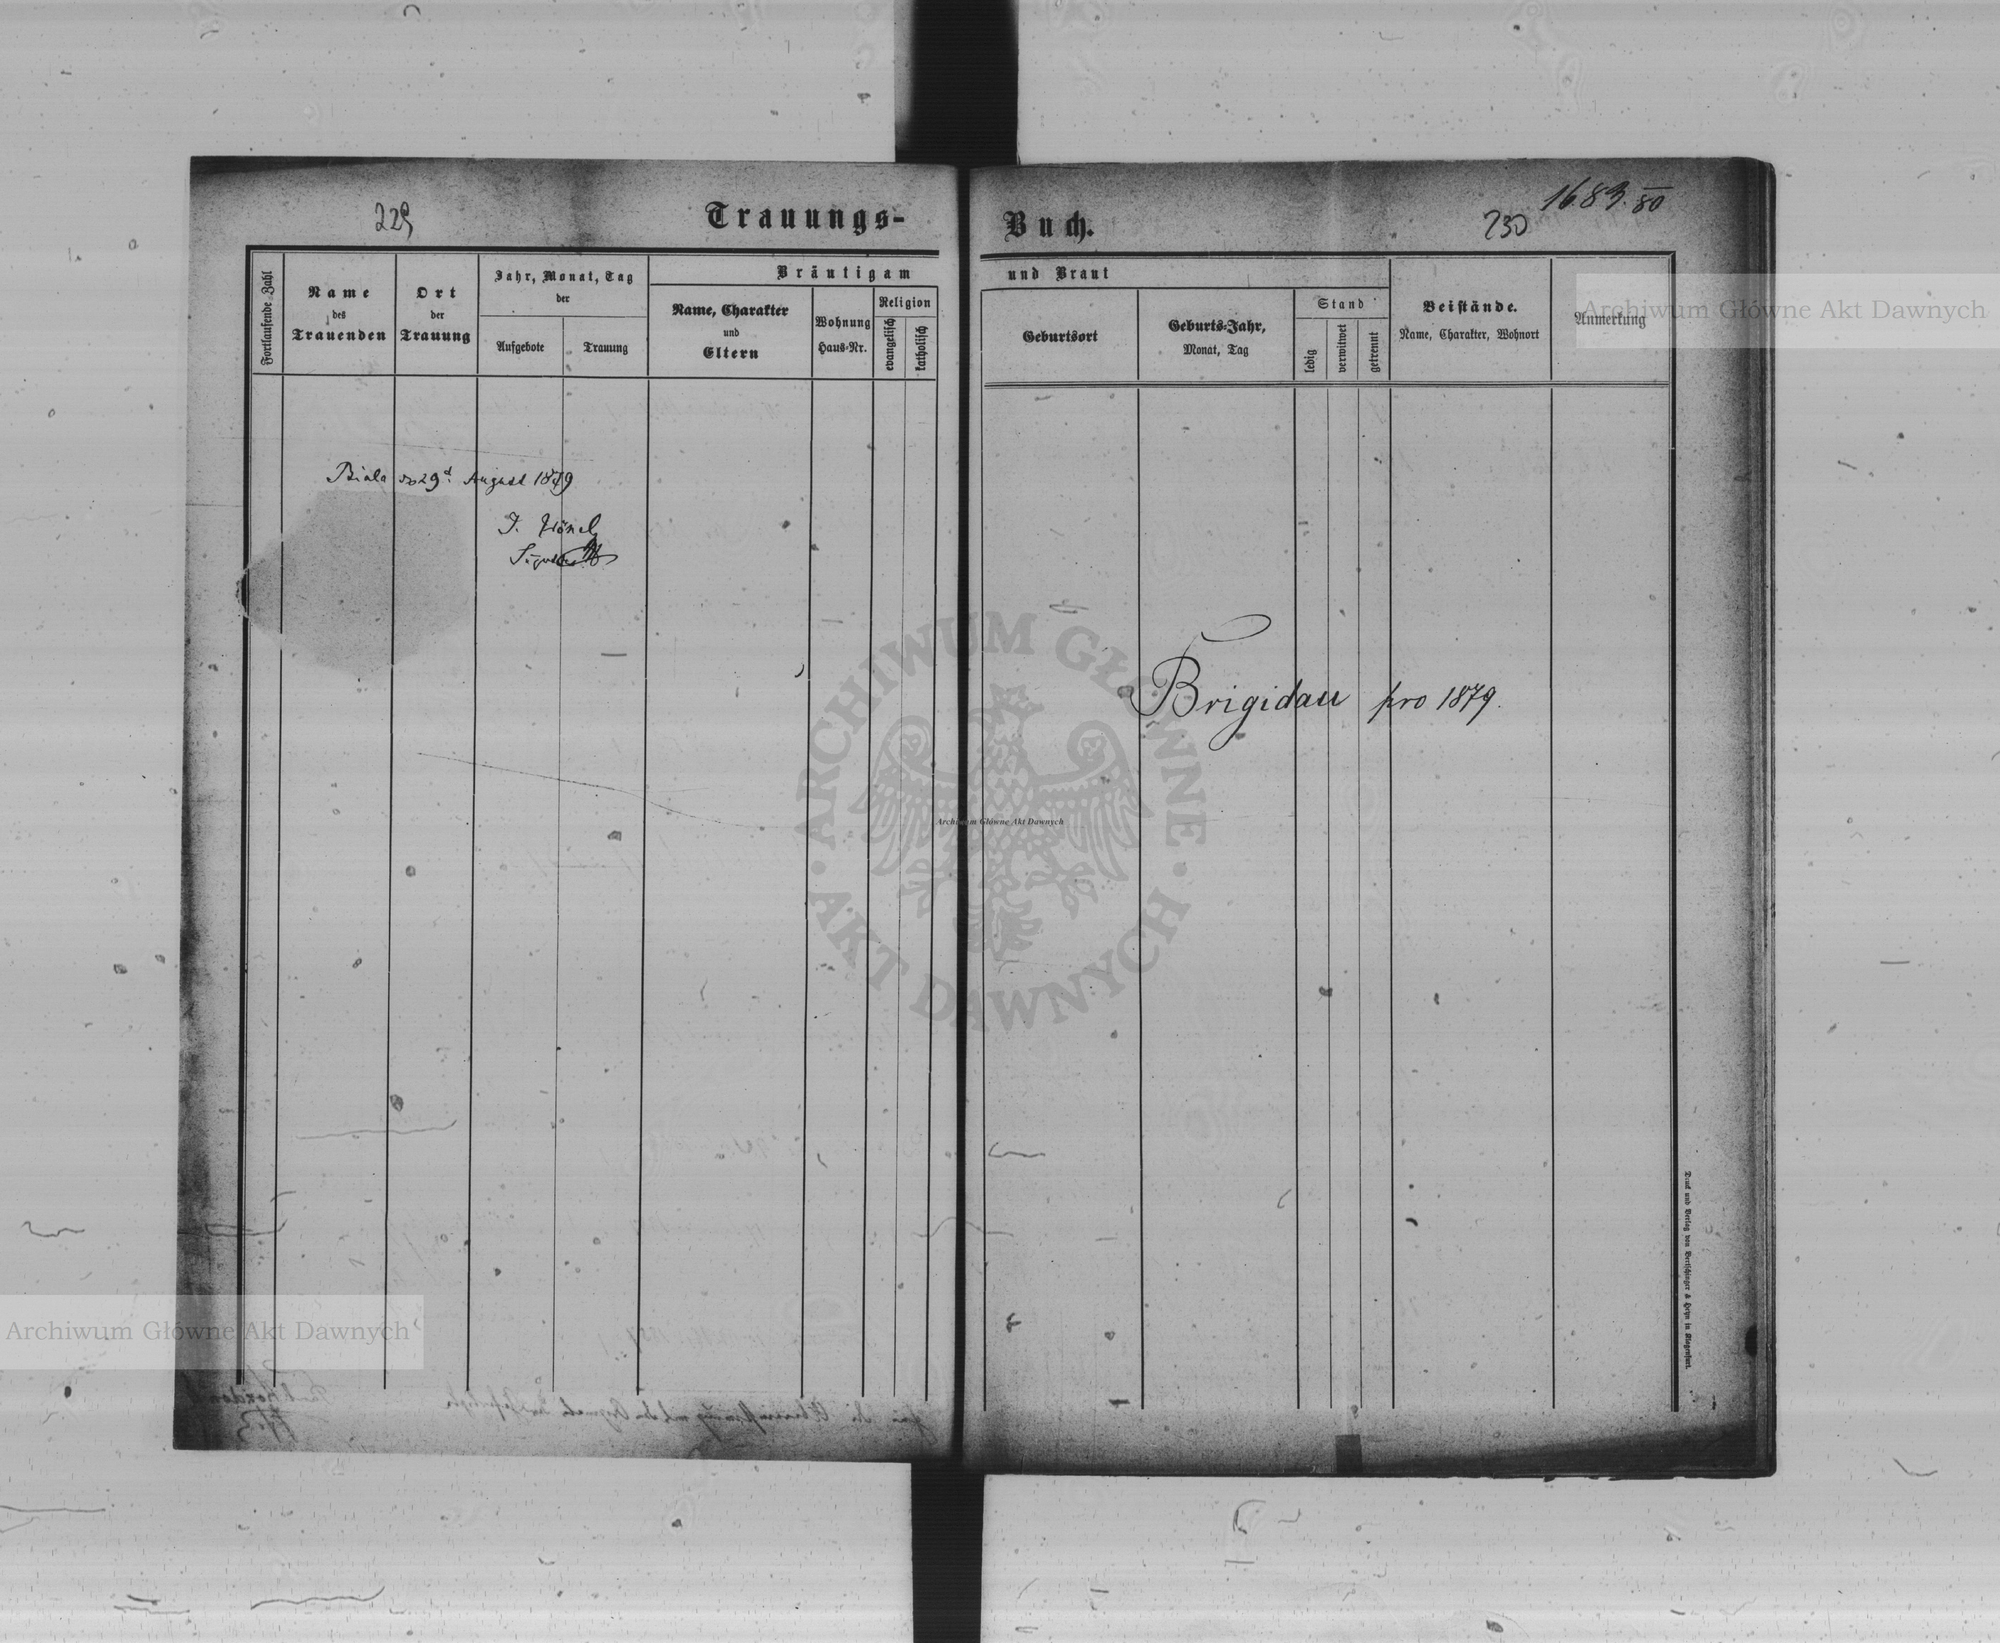 229
Trauungs-
Fortlaufende Zahl
Name
des
Trauenden
Ort
der
Trauung
Jahr, Monat, Tag
der
Aufgebote
Trauung
Bräutigam
Name, Charakter
und
Eltern
Wohnung
Haus-Nr.
Religion
evangelisch
katholisch
Biala 29 August 1879
J. Hönel
Buch.
230
1683. 80
und Braut
Geburtsort
Geburts-Jahr,
Monat, Tag
Stand
ledig
verwitwet
getrennt
Beistände.
Name, Charakter, Wohnort
Anmerkung
Brigidau pro 1879.
Druck und Verlag von Bertschinger & Heyn in Klagenfurt.
Archiwum Główne Akt Dawnych
ARCHIWUM GŁÓWNE
AKT DAWNYCH
Archiwum Główne Akt Dawnych
Archiwum Główne Akt Dawnych